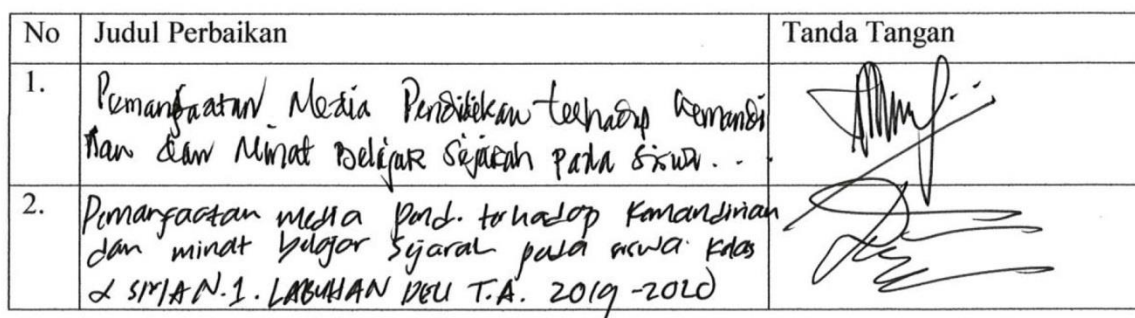 No Judul Perbaikan Tanda Tangan
1. Pemanfaatan Media Pendidikan terhadap kemandi
rian dan Minat Belajar Sejarah pada siswa...
2. Pemanfaatan media pend. terhadap Kemandirian
dan minat belajar Sejarah pada siswa kelas
X SMA N.1. LABUHAN DELI T.A. 2019-2020